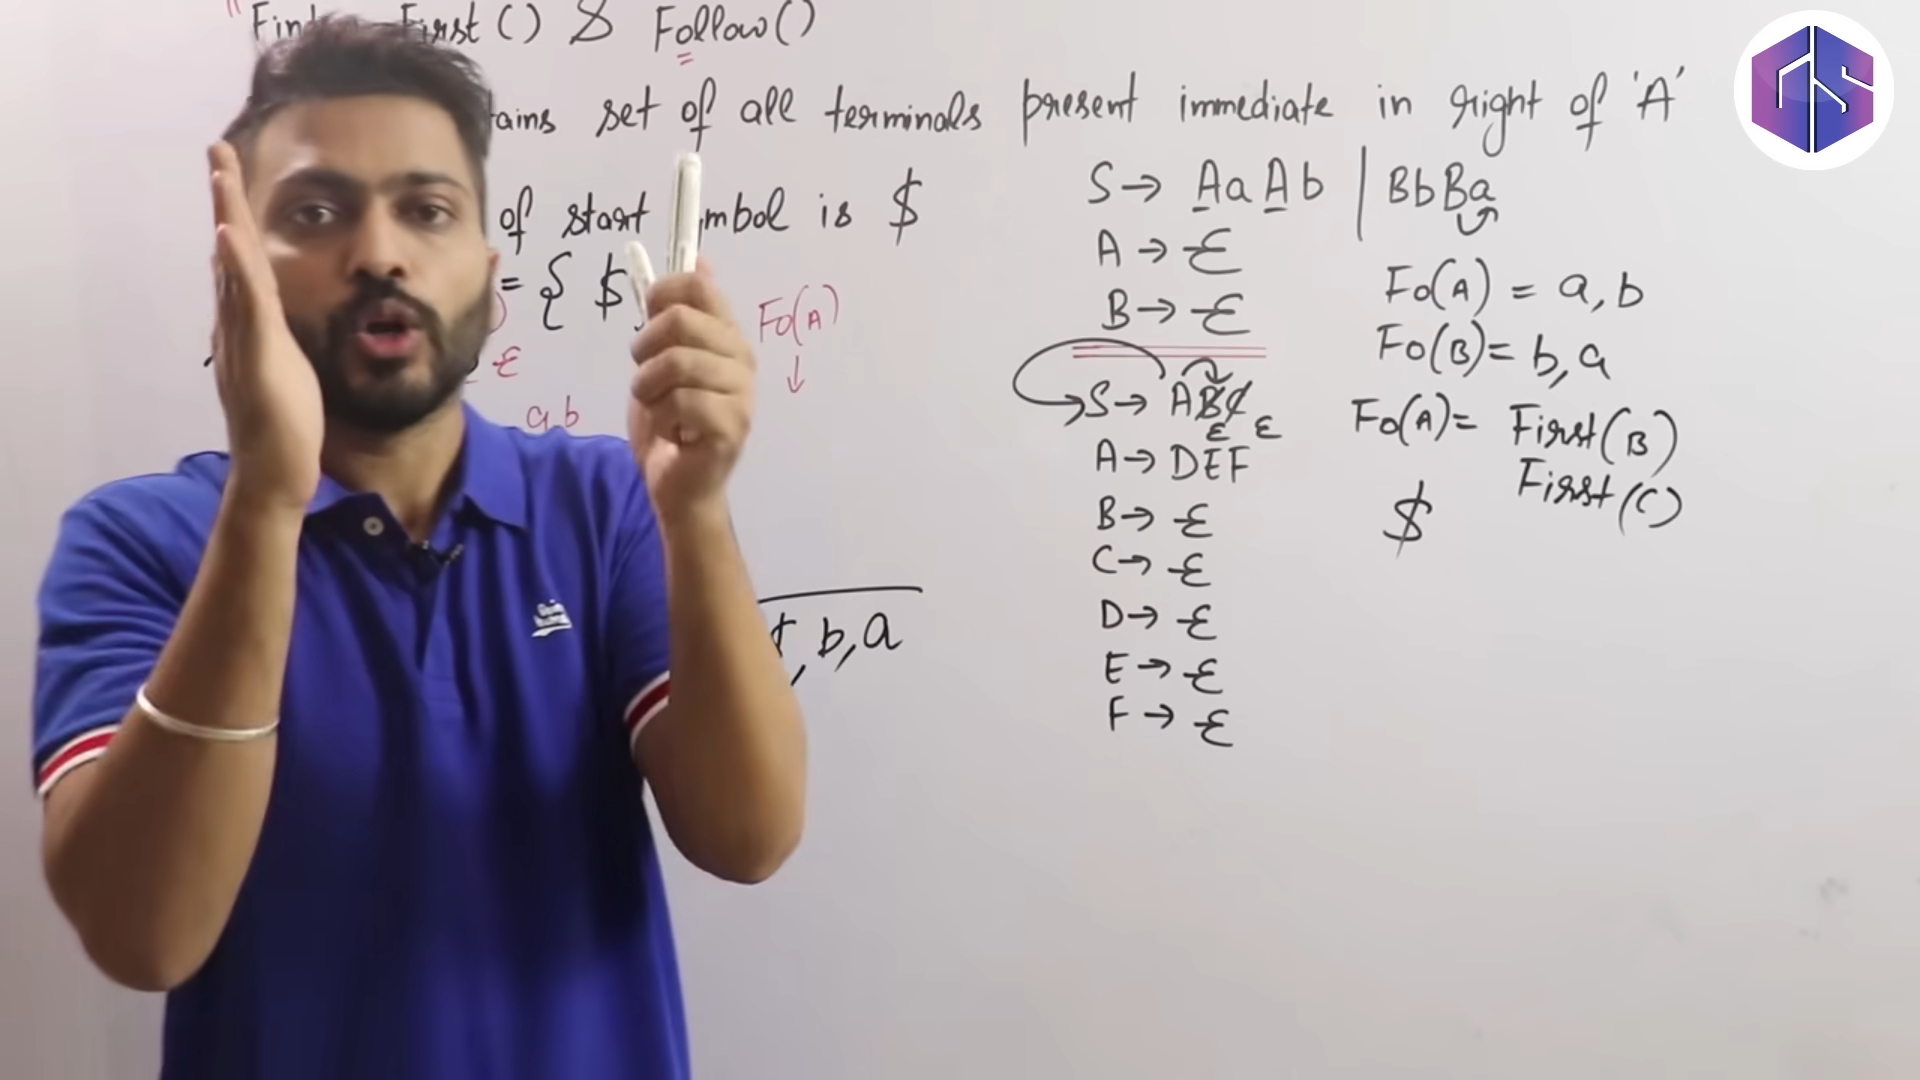 First() & Follow()
set of all terminals present immediate in right of 'A'
of start symbol is $
= { $
ε
a,b
Fo(A)
↓
, b, a
S → AaAb | BbBa
A → ε
B → ε
S → ABC
ε ε
A → DEF
B → ε
C → ε
D → ε
E → ε
F → ε
Fo(A) = a, b
Fo(B) = b, a
Fo(A) = First(B)
First(C)
$